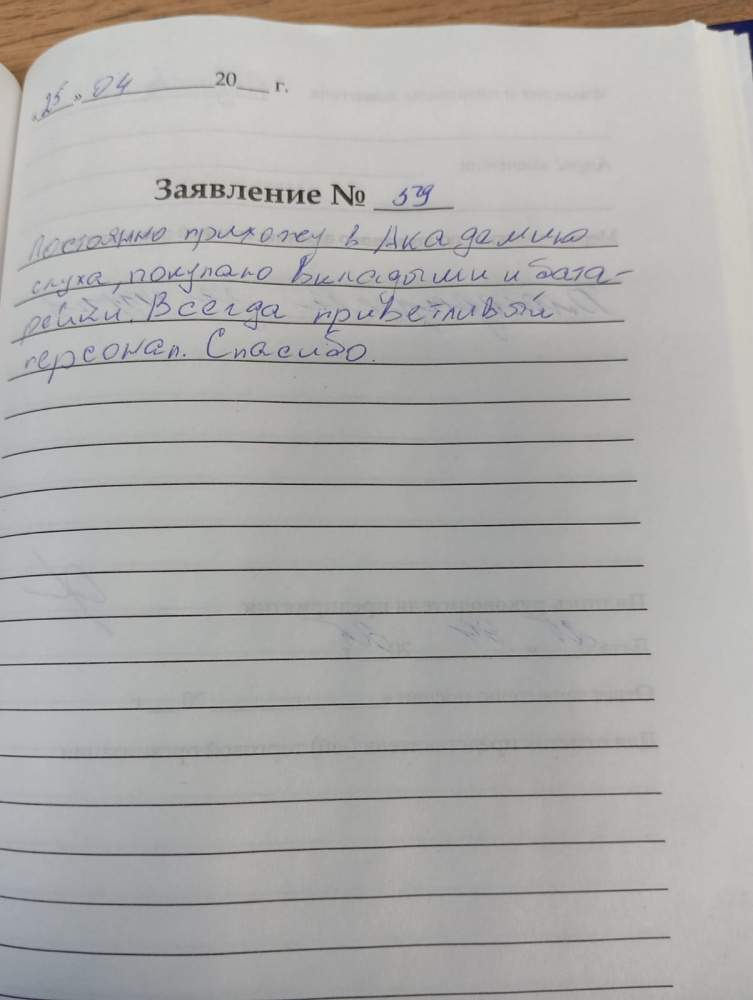 «25» 04 20___ г.
Заявление № 539
Постоянно прихожу в Академию
слуха, покупаю вкладыши и бата-
рейки. Всегда приветливый
персонал. Спасибо.